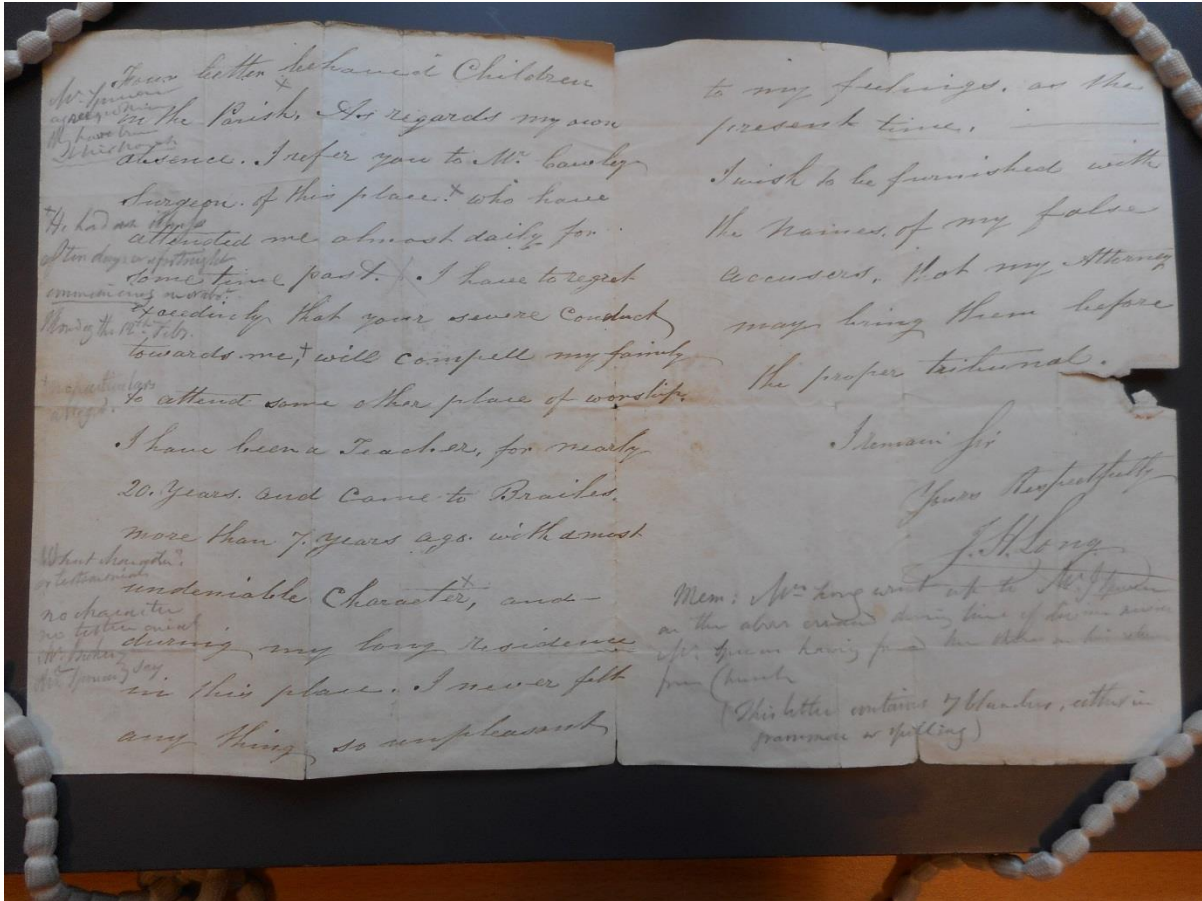 Four better behaved Children
in the Parish. As regards my own
absence. I refer you to Mr. Cawley
Surgeon. of this place. x who have
attended me almost daily for
some time past. I have to regret
exceedinly that your severe Conduct
towards me, x will compell my family
to attend some other place of worship.
I have been a Teacher, for nearly
20. Years. and Came to Brailes.
more than 7. years ago. with a most
undeniable Character x, and
during my long residence
in this place. I never felt
any thing so unpleasant
Mr. Spencer
have been
x He had
of ten days or a fortnight
commencing
Monday the Febr.
x no particulars
What character?
or testimonials
no character
no letter
Mr. Spencer say
to my feelings. as the
present time.
I wish to be furnished with
the Names, of my false
accusers, that my Attorney
may bring them before
the proper tribunal.
I remain Sir
Yours Respectfully
J. H. Long
Mem: Mrs Long went up to Mr. J Spencer
on the above errand during time of divine service
Mr. Spencer having found her there on his return
from Church
(This letter contains 7 blunders, either in
grammar or spelling)